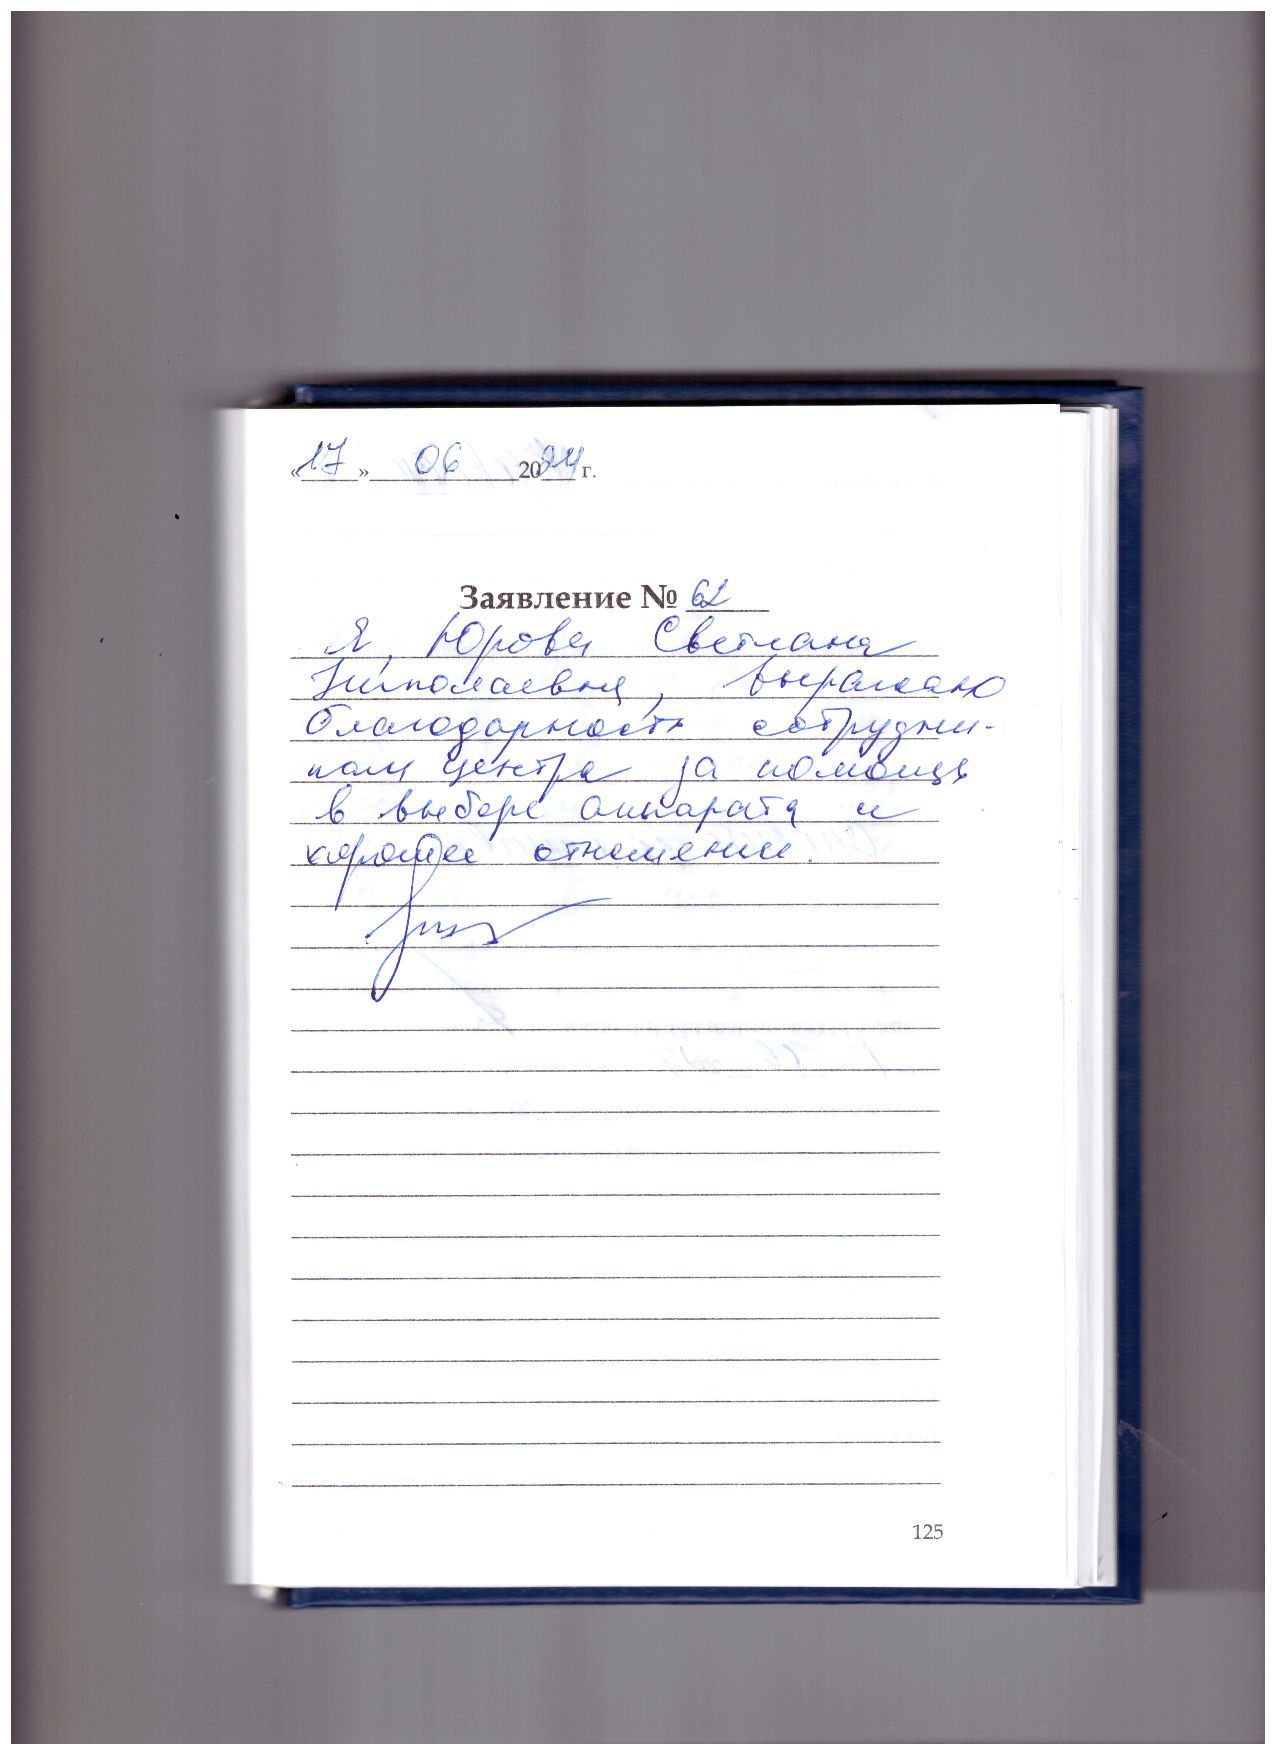 «17» 06 2024 г.
Заявление № 62
Я, Юрова Светлана
Николаевна, выражаю
благодарность сотрудни-
кам центра за помощь
в выборе аппарата и
хорошее отношение.
125